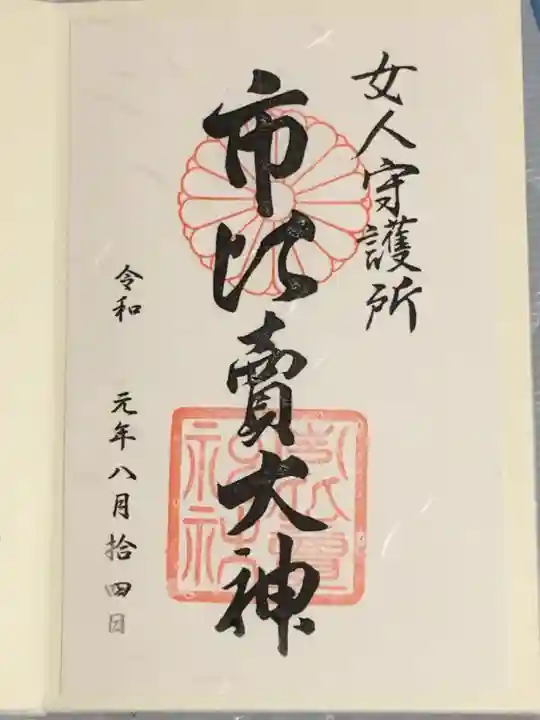 女人守護所
市比賣大神
令和 元年八月拾四日